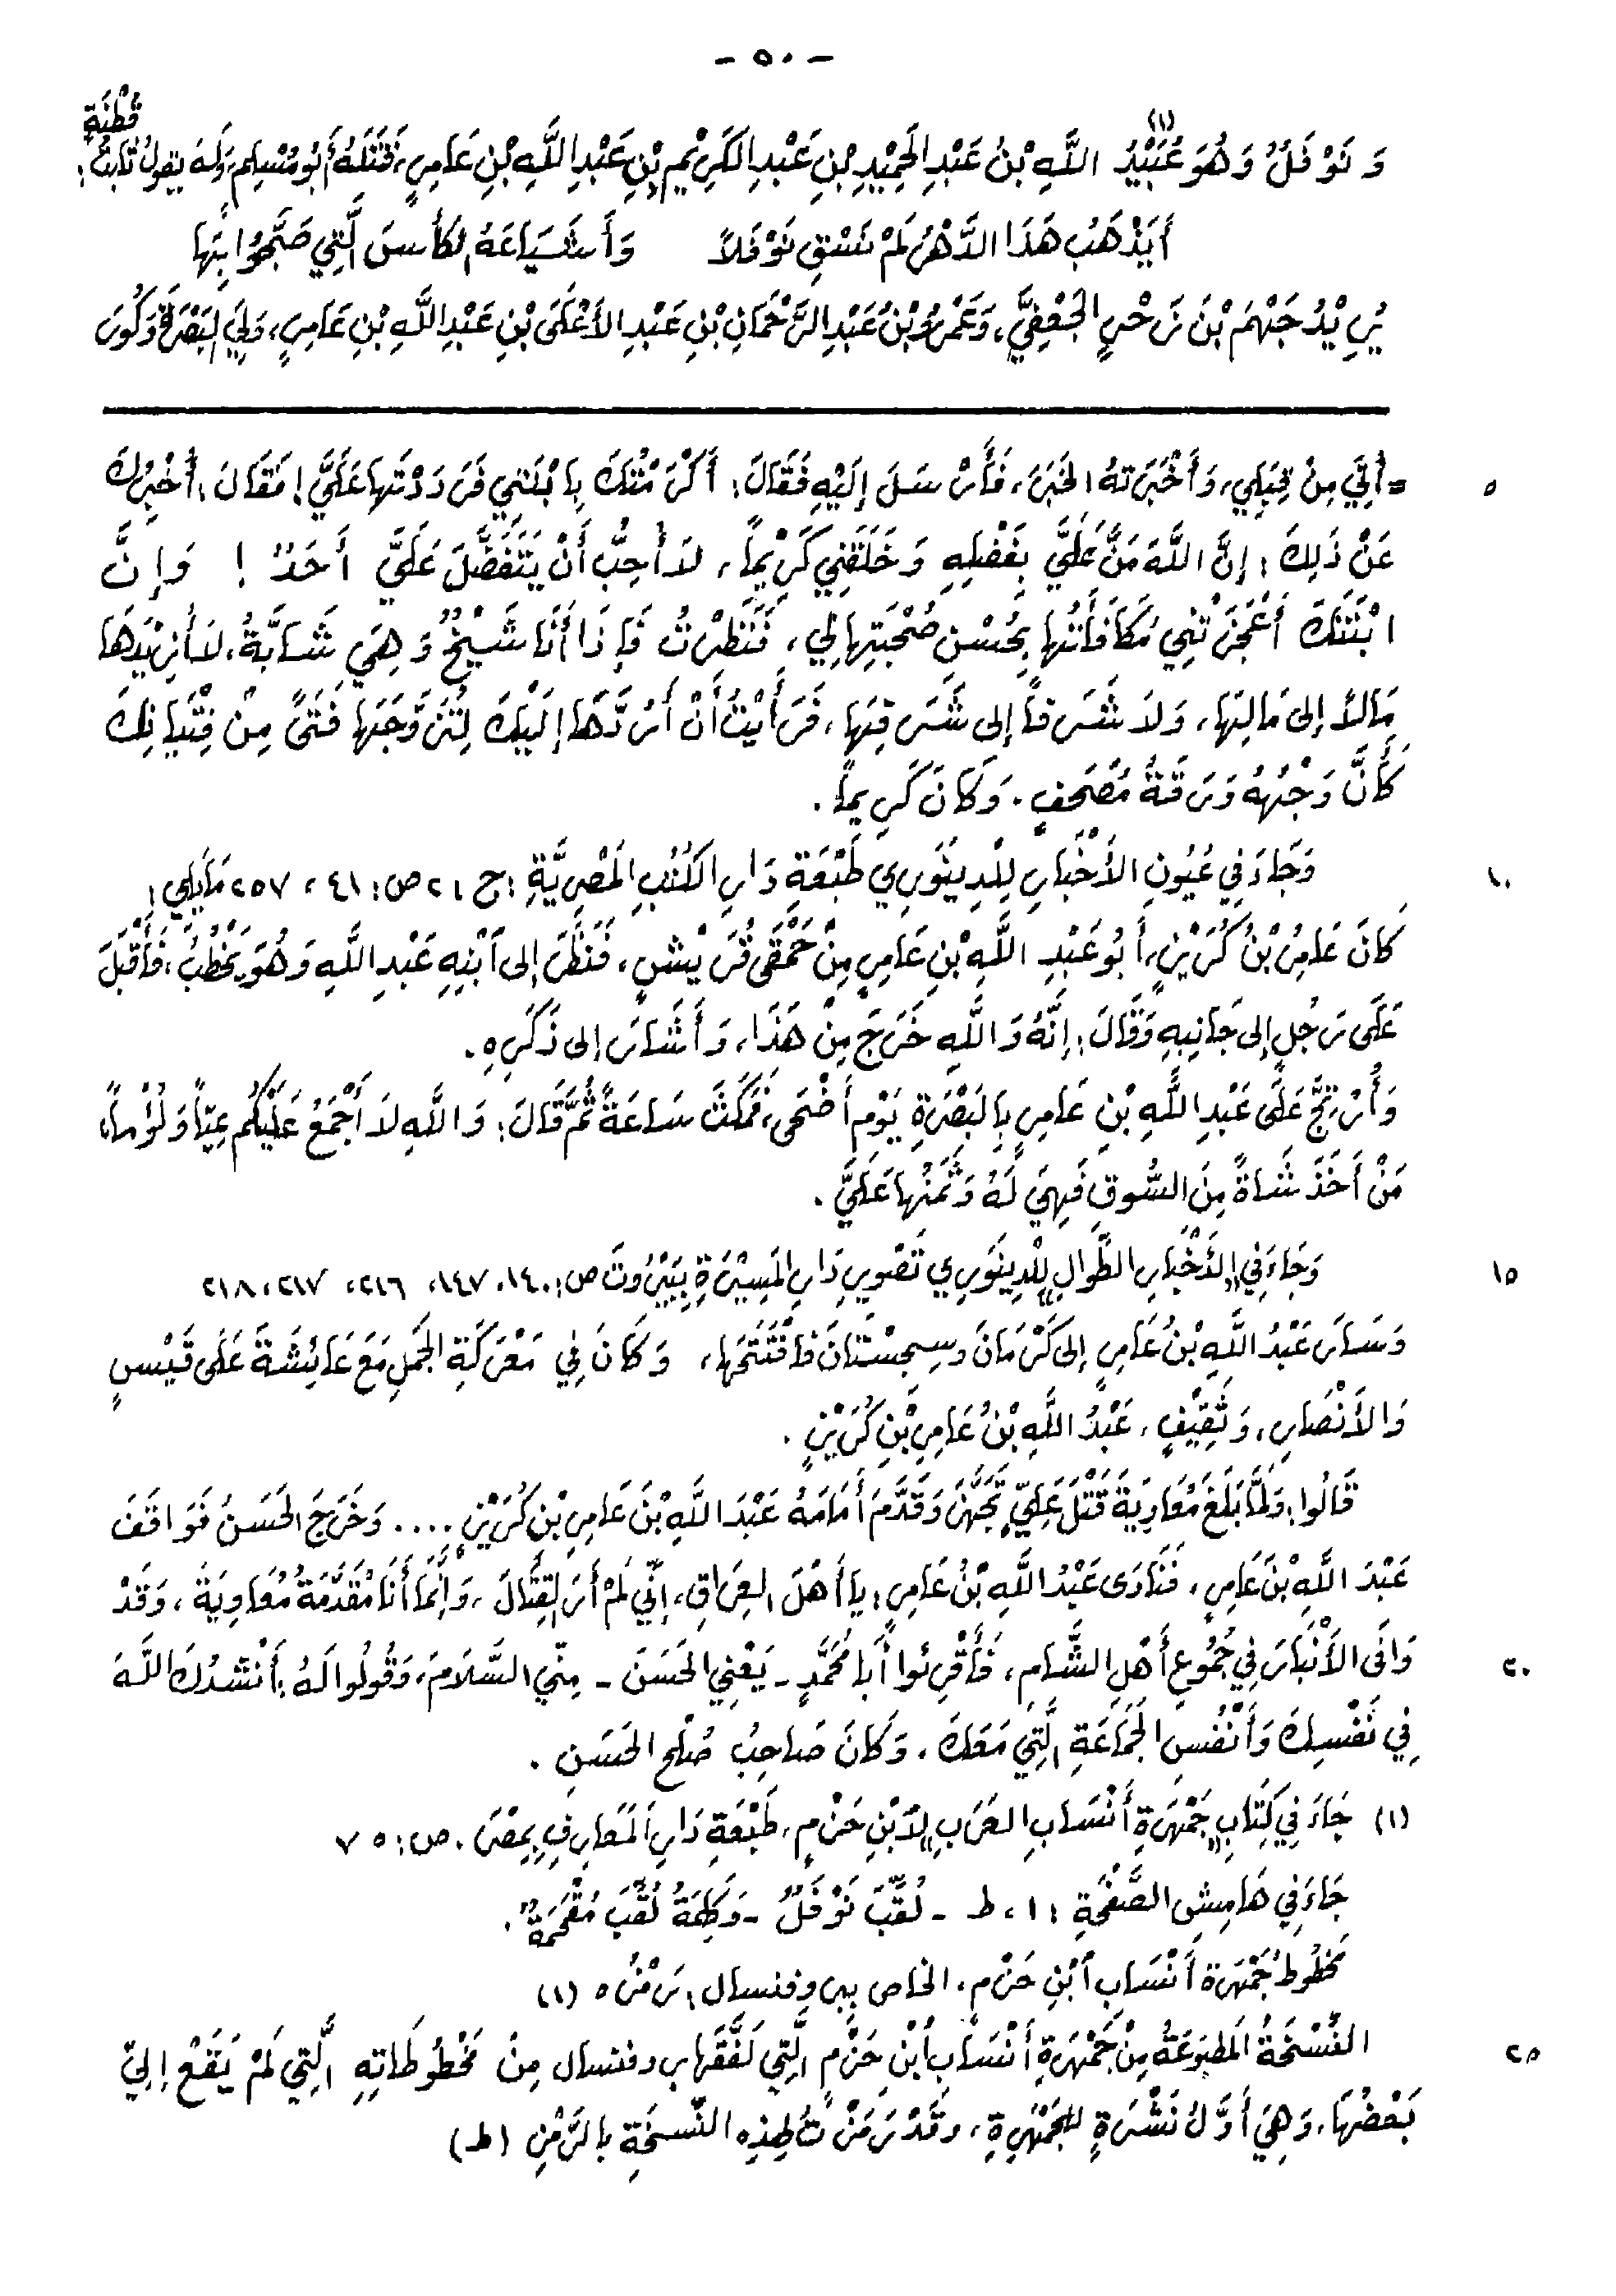 - ٥٠ -
قُطْنَةَ
وَنَوْفَلٌ وَهُوَ عُبَيْدُ (١) اللَّهِ بْنُ عَبْدِ الحَمِيْدِ بْنِ عَبْدِ الكَرِيْمِ بْنِ عَبْدِ اللَّهِ بْنِ عَامِرٍ، قَتَلَهُ أَبُو مُسْلِمٍ، وَلَهُ يَقُولُ ثَابِتُ:
أَيَذْهَبُ هَذَا الدَّهْرُ لَمْ نَسْقِ نَوْفَلاً وَأَشْيَاعَهُ الكَأْسَ الَّتِي صَبَّحُوا بِهَا
يُرِيْدُ جَهْمَ بْنَ زَحْرٍ الجُعْفِيَّ، وَعَمْرُو بْنُ عَبْدِ الرَّحْمَانِ بْنِ عَبْدِ الأَعْلَى بْنِ عَبْدِ اللَّهِ بْنِ عَامِرٍ، وَلِيَ البَصْرَةَ وَكُوَرَ
= أُتِيَ مِنْ قِبَلِي، وَأَخْبَرَتهُ الخَبَرَ، فَأَرْسَلَ إِلَيْهِ فَقَالَ: أَكْرَمْتُكَ بِابْنَتِي فَرَدَدْتَهَا عَلَيَّ! فَقَالَ: أُخْبِرُكَ
٥
عَنْ ذَلِكَ: إِنَّ اللَّهَ مَنَّ عَلَيَّ بِفَضْلِهِ وَخَلَقَنِي كَرِيْماً، لاَ أُحِبُّ أَنْ يَتَفَضَّلَ عَلَيَّ أَحَدٌ! وَإِنَّ
ابْنَتَكَ أَعْجَزَتْنِي مُكَافَأَتُهَا بِحُسْنِ صُحْبَتِهَا لِي، فَنَظَرْتُ فَإِذَا أَنَا شَيْخٌ وَهِيَ شَابَّةٌ، لاَ أَزِيْدُهَا
مَالاً إِلى مَالِهَا، وَلاَ شَرَفاً إِلى شَرَفِهَا، فَرَأَيْتُ أَنْ أَرُدَّهَا إِلَيْكَ لِتُزَوِّجَهَا فَتىً مِنْ فِتْيَانِكَ
كَأَنَّ وَجْهَهُ وَرَقَةُ مُصْحَفٍ. وَكَانَ كَرِيماً.
وَجَاءَ فِي عُيُونِ الأَخْبَارِ لِلدِينَوَرِي طَبْعَةِ دَارِ الكُتُبِ المَصْرِيَّةِ: ج: ٢ ص: ٤١، ٢٥٧ مَايَلِي:
١٠
كَانَ عَامِرُ بْنُ كُرَيْزٍ، أَبُو عَبْدِ اللَّهِ بْنِ عَامِرٍ مِنْ حَمْقَى قُرَيْشٍ، فَنَظَرَ إِلى ابْنِهِ عَبْدِ اللَّهِ وَهُوَ يَخْطُبُ، فَأَقْبَلَ
عَلَى رَجُلٍ إِلى جَانِبِهِ وَقَالَ: إِنَّهُ وَاللَّهِ خَرَجَ مِنْ هَذَا، وَأَشَارَ إِلى ذَكَرِهِ.
وَأُرْتِجَ عَلَى عَبْدِ اللَّهِ بْنِ عَامِرٍ بِالبَصْرَةِ يَوْمَ أَضْحَى، فَمَكَثَ سَاعَةً ثُمَّ قَالَ: وَاللَّهِ لاَ أَجْمَعُ عَلَيْكُم عِيّاً وَلُؤْماً،
مَنْ أَخَذَ شَاةً مِنَ السُّوقِ فَهِيَ لَهُ وَثَمَنُهَا عَلَيَّ.
وَجَاءَ فِي «الأَخْبَارِ الطِّوَالِ» لِلدِينَوَرِي تَصْوِيرِ دَارِ المَسِيْرَةِ بِبَيْرُوتَ ص: ١٤٠، ١٤٧، ٢١٦، ٢١٧، ٢١٨
١٥
وَسَارَ عَبْدُ اللَّهِ بْنُ عَامِرٍ إِلى كَرْمَانَ وَسِجِسْتَانَ فَافْتَتَحَهَا، وَكَانَ فِي مَعْرَكَةِ الجَمَلِ مَعَ عَائِشَةَ عَلَى قَيْسٍ
وَالأَنْصَارِ، وَثَقِيْفٍ، عَبْدُ اللَّهِ بْنُ عَامِرِ بْنِ كُرَيْزٍ.
قَالُوا: وَلَمَّا بَلَغَ مُعَاوِيَةَ قَتْلُ عَلِيٍّ تَجَهَّزَ وَقَدَّمَ أَمَامَهُ عَبْدَ اللَّهِ بْنَ عَامِرِ بْنِ كُرَيْزٍ .... وَخَرَجَ الحَسَنُ فَوَاقَفَ
عَبْدَ اللَّهِ بْنَ عَامِرٍ، فَنَادَى عَبْدُ اللَّهِ بْنُ عَامِرٍ: يَا أَهْلَ العِرَاقِ، إِنِّي لَمْ أَرَ القِتَالَ، وَإِنَّمَا أَنَا مُقَدَّمَةُ مُعَاوِيَةَ، وَقَدْ
وَافَى الأَنْبَارَ فِي جُمُوعِ أَهْلِ الشَّامِ، فَأَقْرِئوا أَبَا مُحَمَّدٍ - يَعْنِي الحَسَنَ - مِنِّي السَّلاَمَ، وَقُولُوا لَهُ: أَنْشُدُكَ اللَّهَ
٢٠
فِي نَفْسِكَ وَأَنْفُسِ الجَمَاعَةِ الَّتِي مَعَكَ. وَكَانَ صَاحِبُ صُلْحِ الحَسَنِ.
(١) جَاءَ فِي كِتَابِ «جَمْهَرَةِ أَنْسَابِ العَرَبِ» لِابْنِ حَزْمٍ، طَبْعَةِ دَارِ المَعَارِفِ بِمِصْرَ. ص: ٧٥
جَاءَ فِي هَامِشِ الصَّفْحَةِ: ١، ط - لُقِّبَ نَوْفَلٌ - وَكَلِمَةُ لُقِّبَ مُقْحَمَةٌ".
مَخْطُوطُ جَمْهَرَةِ أَنْسَابِ ابْنِ حَزْمٍ، الخاص ببروفنسال: رَمْزُه (١)
النُّسْخَةُ المَطبُوعَةُ مِنْ جَمْهَرَةِ أَنْسَابِ ابْنِ حَزْمٍ الَّتِي لَفَّقَهَا بروفنسال مِنْ مَخْطُوطَاتِهِ الَّتِي لَمْ يَقَعْ إِليَّ
٢٥
بَعْضُهَا، وَهِيَ أَوَّلُ نَشْرَةٍ لِلجَمْهَرَةِ، وَقَدْ رَمَزْتُ لِهذِهِ النُّسْخَةِ بالرَّمْزِ (ط)